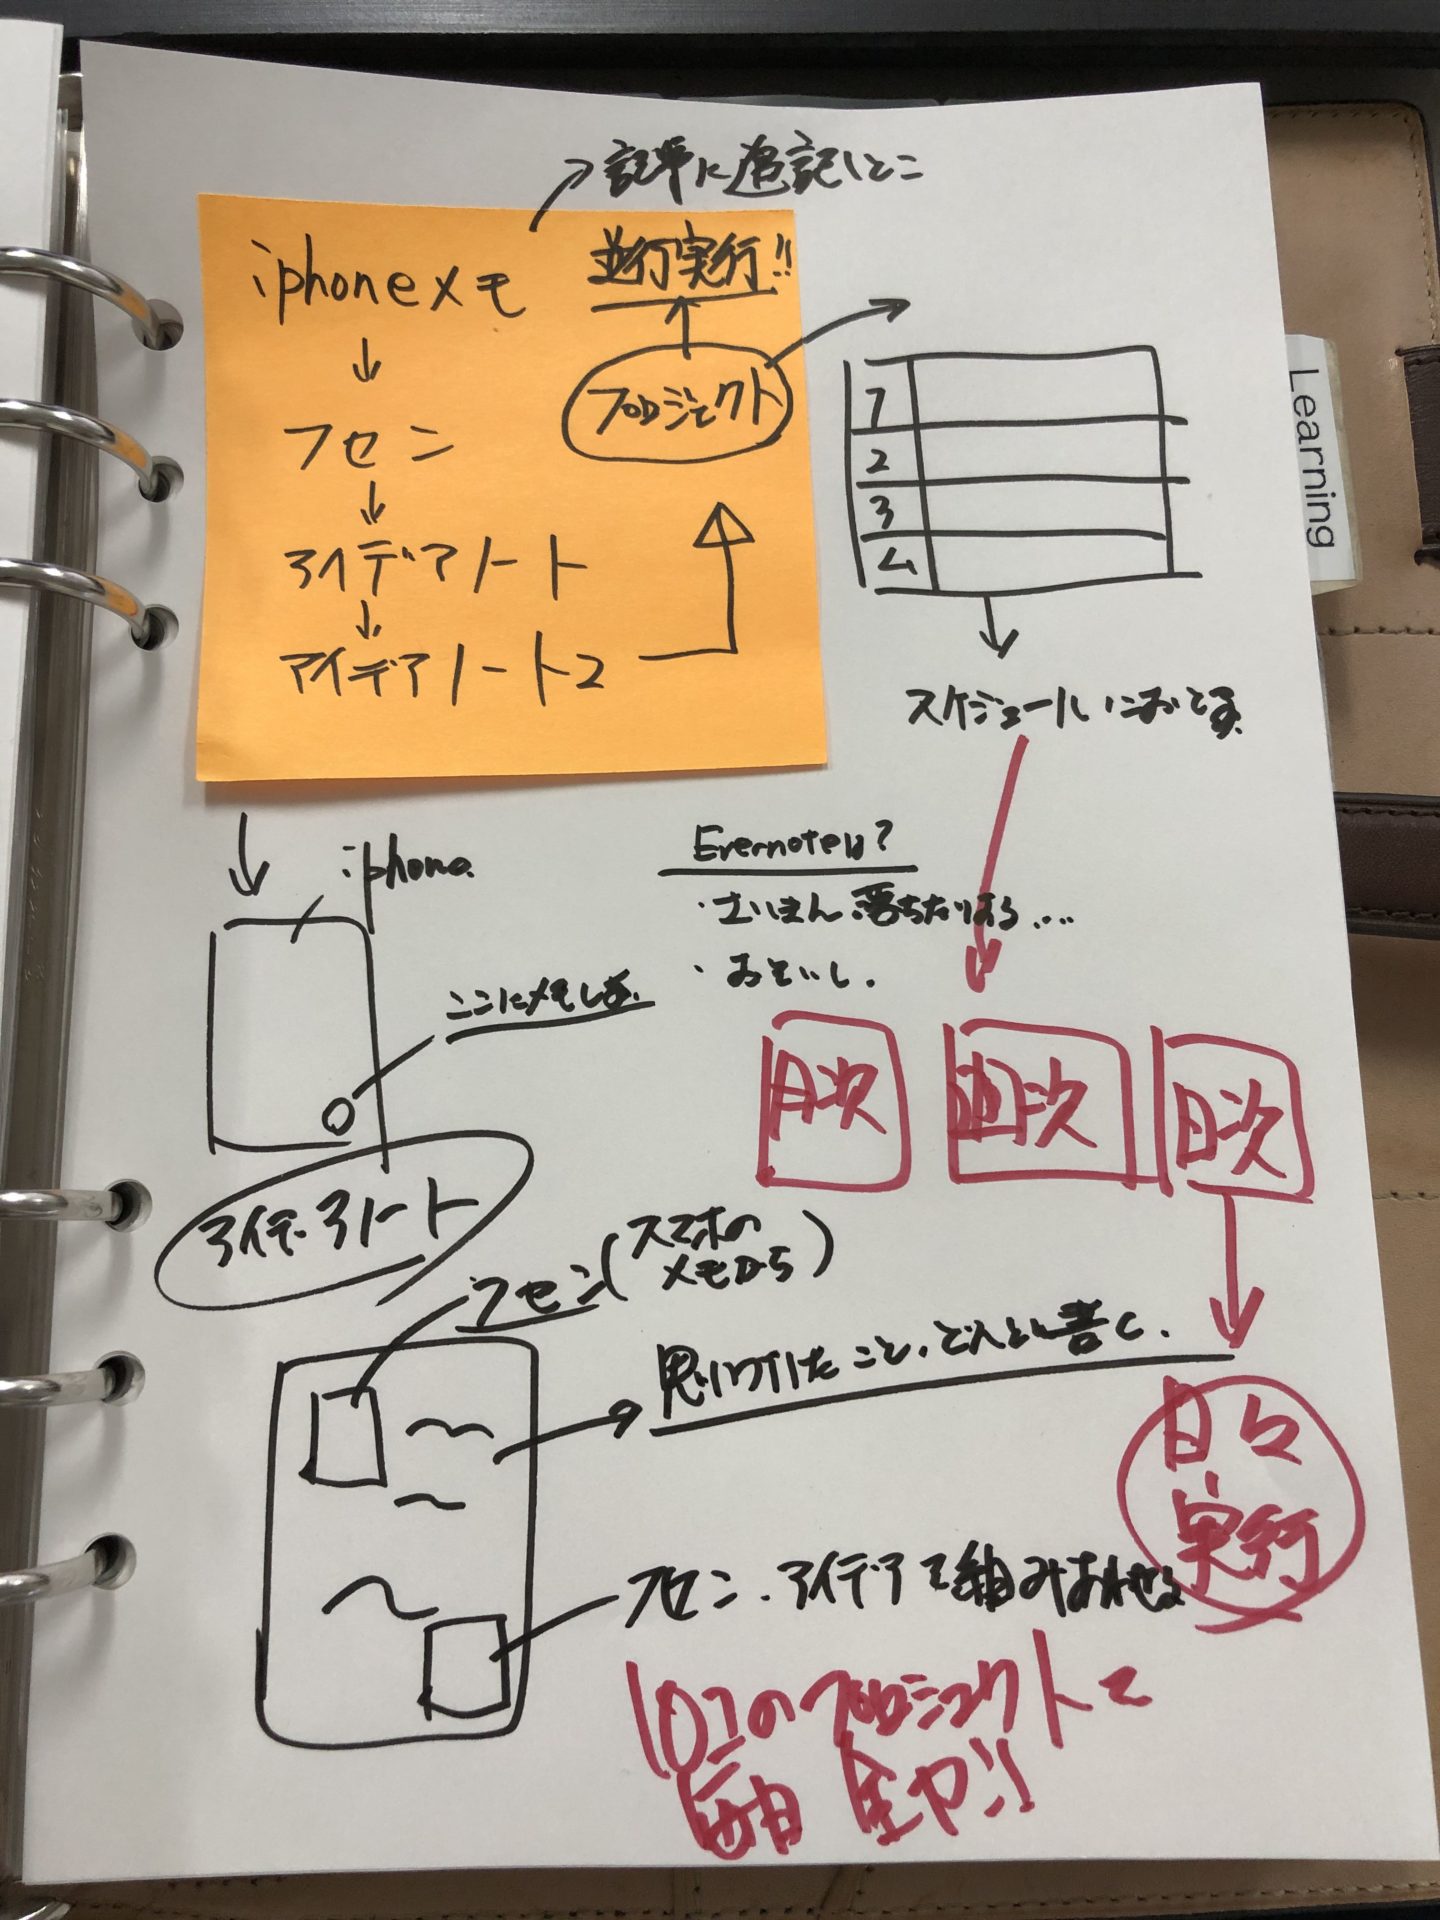 記事に追記しとこ
並行実行!!
iphoneメモ
↓
フセン
↓
アイデアノート
↓
アイデアノート2
プロジェクト
1
2
3
4
スケジュールにおとす
Learning
iphone
ここにメモしる
Evernoteは?
・さいきん落ちたりする...
・おそいし.
月次
週次
日次
アイデアノート
フセン(スマホの
メモから)
思いついたこと、どんどん書く.
日々
実行
フセン.アイデアを組みあわせる
10コのプロジェクトを
毎日